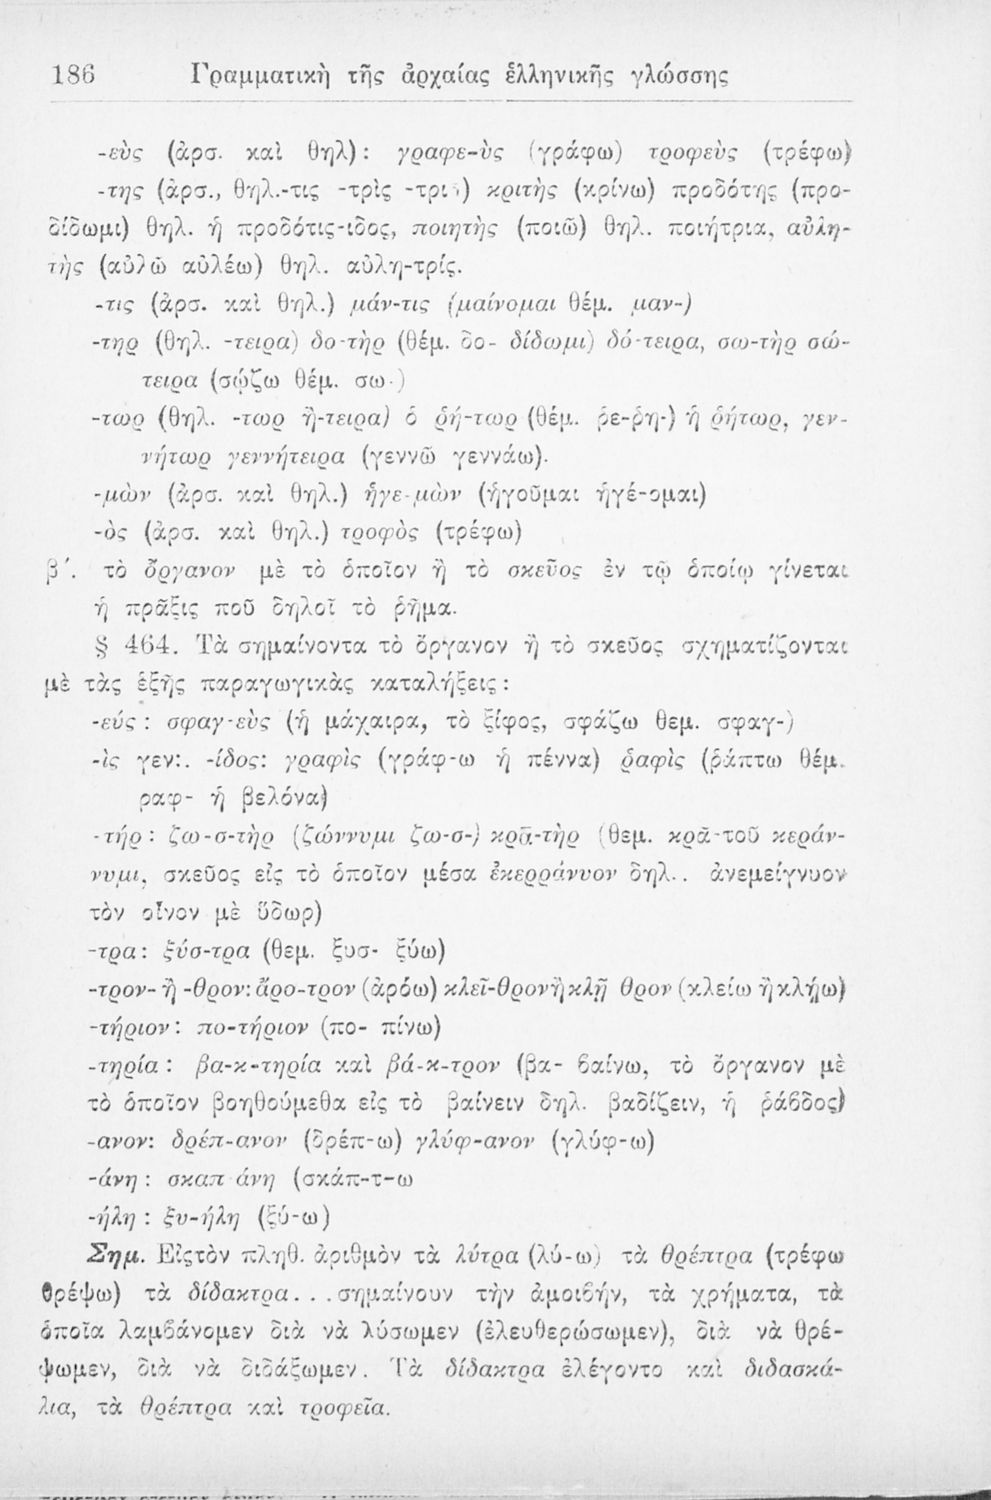 186 Γραμματικὴ τῆς ἀρχαίας ἑλληνικῆς γλώσσης
-εὺς (ἀρσ. καὶ θηλ): γραφε-ὺς (γράφω) τροφεὺς (τρέφω)
-της (ἀρσ., θηλ.-τις -τρὶς -τρι) κριτὴς (κρίνω) προδότης (προ-
δίδωμι) θηλ. ἡ προδότις-ιδος, ποιητὴς (ποιῶ) θηλ. ποιήτρια, αὐλη-
τὴς (αὐλῶ αὐλέω) θηλ. αὐλη-τρίς.
-τις (ἀρσ. καὶ θηλ.) μάν-τις (μαίνομαι θέμ. μαν-)
-τηρ (θηλ. -τειρα) δο-τὴρ (θέμ. δο- δίδωμι) δό-τειρα, σω-τὴρ σώ-
τειρα (σῴζω θέμ. σω-)
-τωρ (θηλ. -τωρ ἢ-τειρα) ὁ ῥή-τωρ (θέμ. ῥε-ῥη-) ἡ ῥήτωρ, γεν-
νήτωρ γεννήτειρα (γεννῶ γεννάω).
-μὼν (ἀρσ. καὶ θηλ.) ἡγε-μὼν (ἡγοῦμαι ἡγέ-ομαι)
-ὸς (ἀρσ. καὶ θηλ.) τροφὸς (τρέφω)
β΄. τὸ ὄργανον μὲ τὸ ὁποῖον ἢ τὸ σκεῦος ἐν τῷ ὁποίῳ γίνεται
ἡ πρᾶξις ποῦ δηλοῖ τὸ ῥῆμα.
§ 464. Τὰ σημαίνοντα τὸ ὄργανον ἢ τὸ σκεῦος σχηματίζονται
μὲ τὰς ἑξῆς παραγωγικὰς καταλήξεις:
-εύς: σφαγ-εὺς (ἡ μάχαιρα, τὸ ξίφος, σφάζω θεμ. σφαγ-)
-ὶς γεν:. -ίδος: γραφὶς (γράφ-ω ἡ πέννα) ῥαφὶς (ῥάπτω θέμ.
ραφ- ἡ βελόνα)
-τήρ: ζω-σ-τὴρ (ζώννυμι ζω-σ-) κρᾱ-τὴρ (θεμ. κρᾱ-τοῦ κεράν-
νυμι, σκεῦος εἰς τὸ ὁποῖον μέσα ἐκερράνυον δηλ.. ἀνεμείγνυον
τὸν οἶνον μὲ ὕδωρ)
-τρα: ξύσ-τρα (θεμ. ξυσ- ξύω)
-τρον- ἢ -θρον: ἄρο-τρον (ἀρόω) κλεῖ-θρον ἢ κλῇ θρον (κλείω ἢ κλῄω)
-τήριον: πο-τήριον (πο- πίνω)
-τηρία: βα-κ-τηρία καὶ βά-κ-τρον (βα- βαίνω, τὸ ὄργανον μὲ
τὸ ὁποῖον βοηθούμεθα εἰς τὸ βαίνειν δηλ. βαδίζειν, ἡ ῥάβδος)
-ανον: δρέπ-ανον (δρέπ-ω) γλύφ-ανον (γλύφ-ω)
-άνη: σκαπ άνη (σκάπ-τ-ω
-ήλη: ξυ-ήλη (ξύ-ω)
Σημ. Εἰςτὸν πληθ. ἀριθμὸν τὰ λύτρα (λύ-ω) τὰ θρέπτρα (τρέφω
θρέψω) τὰ δίδακτρα. . .σημαίνουν τὴν ἀμοιβήν, τὰ χρήματα, τὰ
ὁποῖα λαμβάνομεν διὰ νὰ λύσωμεν (ἐλευθερώσωμεν), διὰ νὰ θρέ-
ψωμεν, διὰ νὰ διδάξωμεν. Τὰ δίδακτρα ἐλέγοντο καὶ διδασκά-
λια, τὰ θρέπτρα καὶ τροφεῖα.